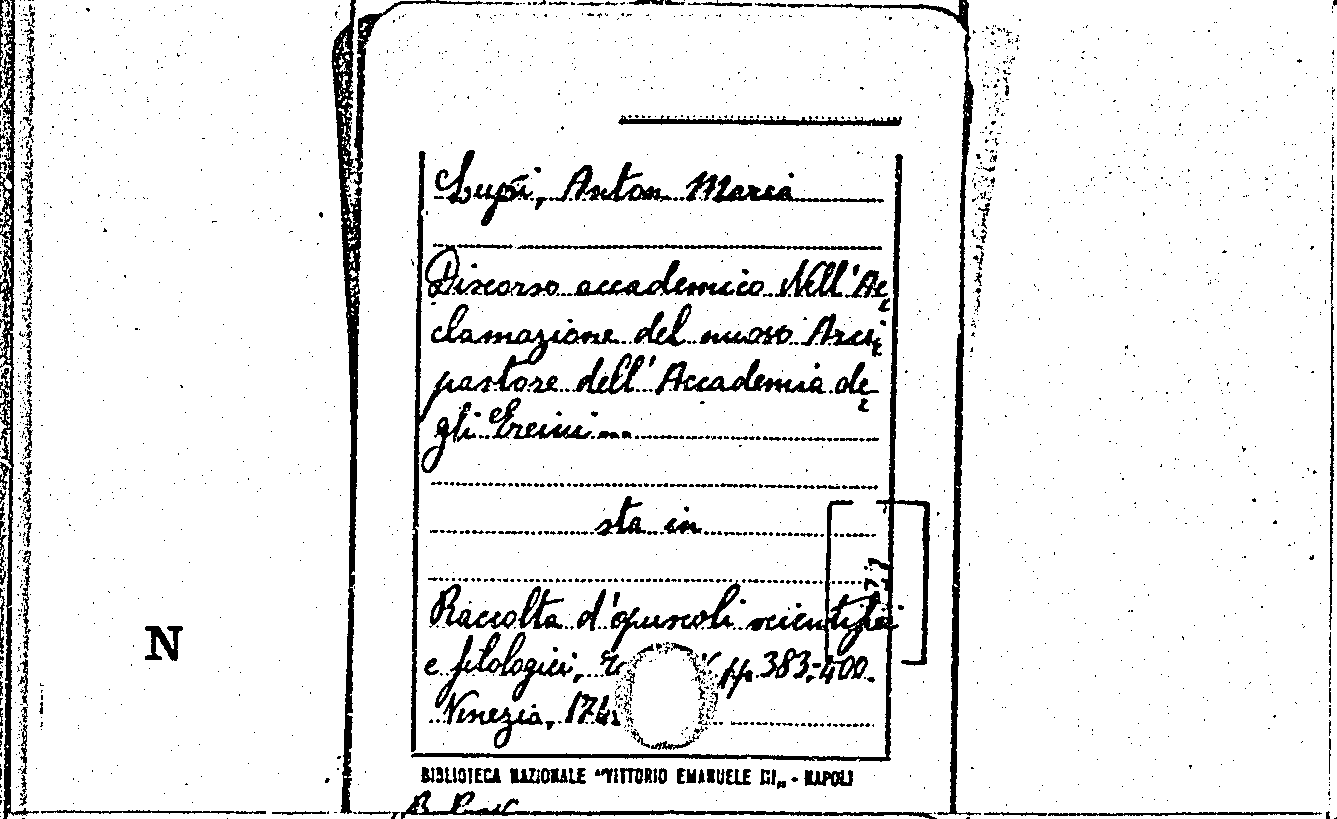 Lupi, Anton Maria
Discorso accademico Nell'Ac=
clamazione del nuovo Arci=
pastore dell'Accademia de=
gli Ereini...
sta in
Raccolta d'opuscoli scientifici
e filologici, pp. 383-400.
Venezia,
N
BIBLIOTECA NAZIONALE "VITTORIO EMANUELE III„ - NAPOLI